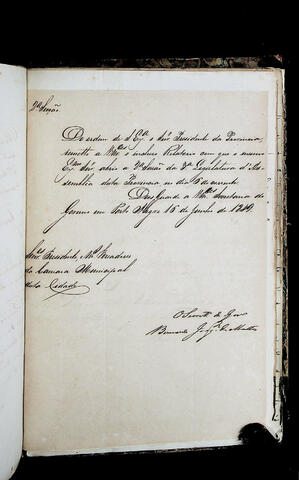 2ª Secção
De ordem de S Exª o Snr Presidente da Provincia,
remetto a VMces o incluso Relatorio com que o mesmo
Exmo Snr abrio a 2ª Sessão da 3ª Legislatura d'As-
semblea desta Provincia no dia 6 do corrente.
Deus guarde a VMces Secretaria do
Governo em Porto Alegre 16 de Junho de
Snres Presidente, e Vereadores
da Camara Municipal
desta Cidade
O Secretº do Govº
Bernardo